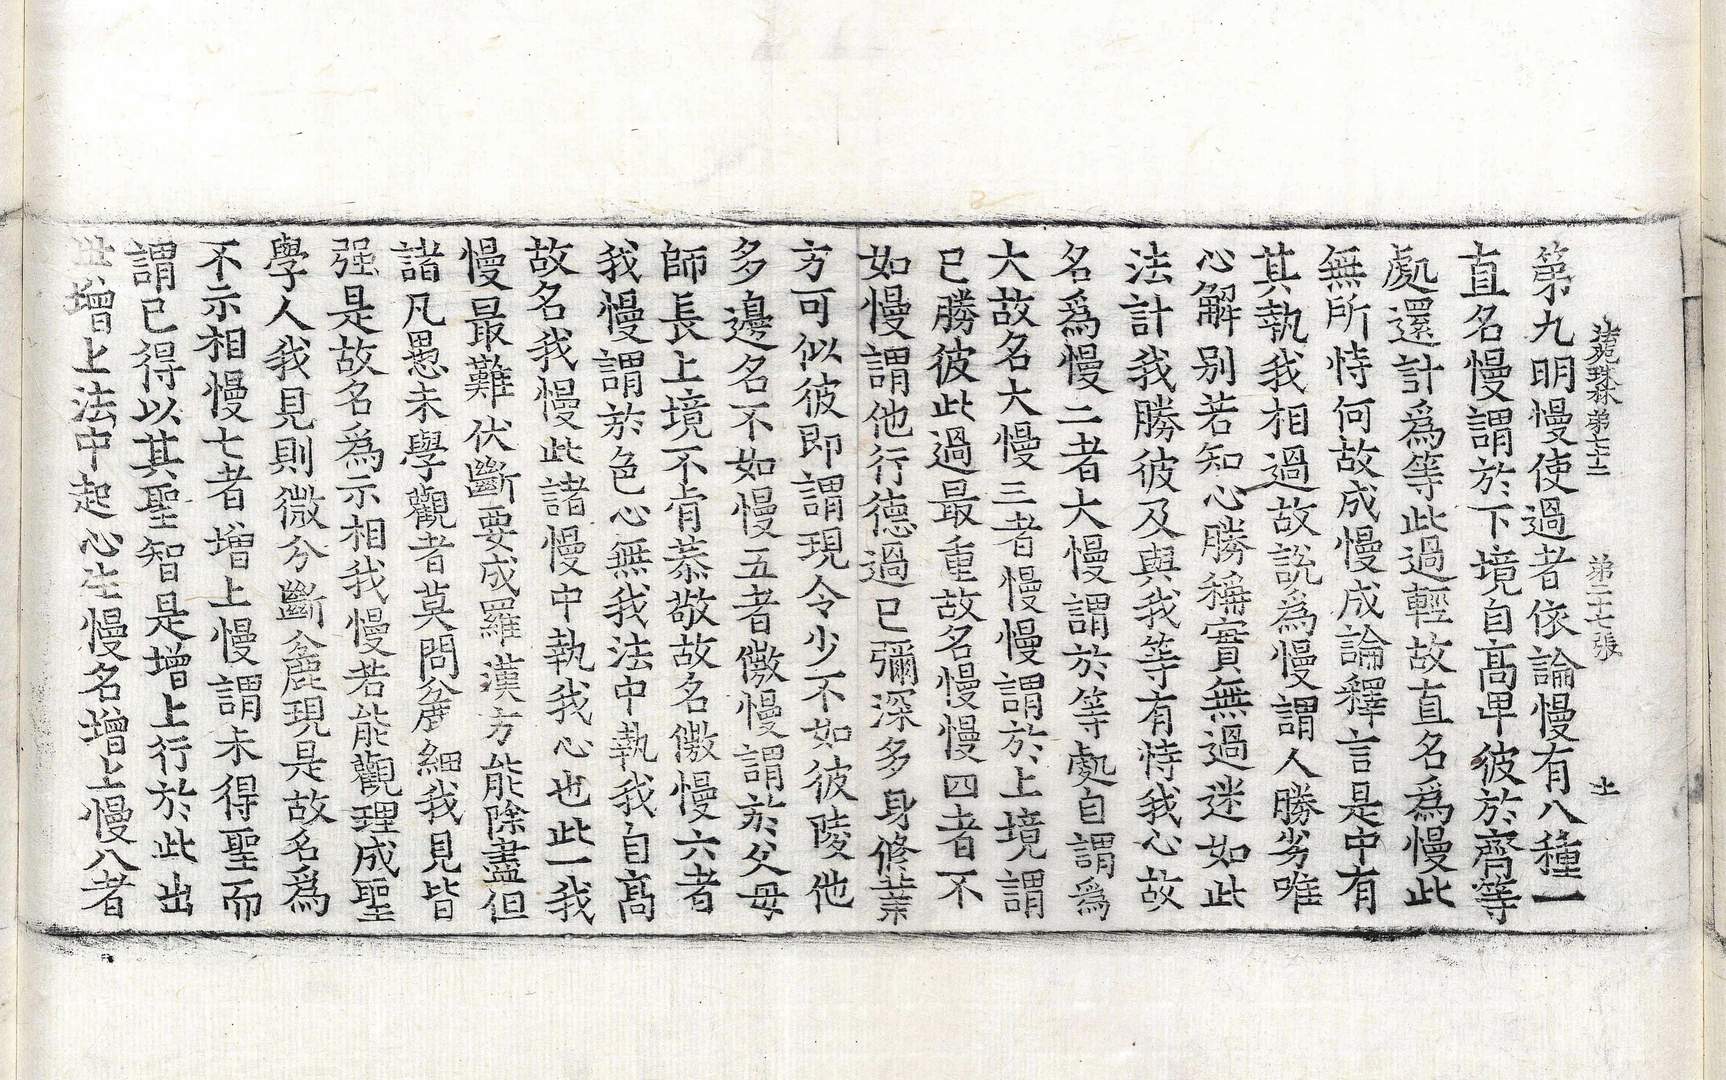 法苑珠林第七十二 第二十七張 士
第九明慢使過者依論慢有八種一
直名慢謂於下境自高卑彼於齊等
處還計爲等此過輕故直名爲慢此
無所恃何故成慢成論釋言是中有
其執我相過故說爲慢謂人勝劣唯
心解別若知心勝稱實無過迷如此
法計我勝彼及與我等有恃我心故
名爲慢二者大慢謂於等處自謂爲
大故名大慢三者慢慢謂於上境謂
已勝彼此過最重故名慢慢四者不
如慢謂他行德過已彌深多身修業
方可似彼即謂現今少不如彼陵他
多邊名不如慢五者慠慢謂於父母
師長上境不肯恭敬故名慠慢六者
我慢謂於色心無我法中執我自高
故名我慢此諸慢中執我心也此一我
慢最難伏斷要成羅漢方能除盡但
諸凡愚未學觀者莫問麁細我見皆
强是故名爲示相我慢若能觀理成聖
學人我見則微分斷麁現是故名爲
不示相慢七者增上慢謂未得聖而
謂已得以其聖智是增上行於此出
世增上法中起心生慢名增上慢八者